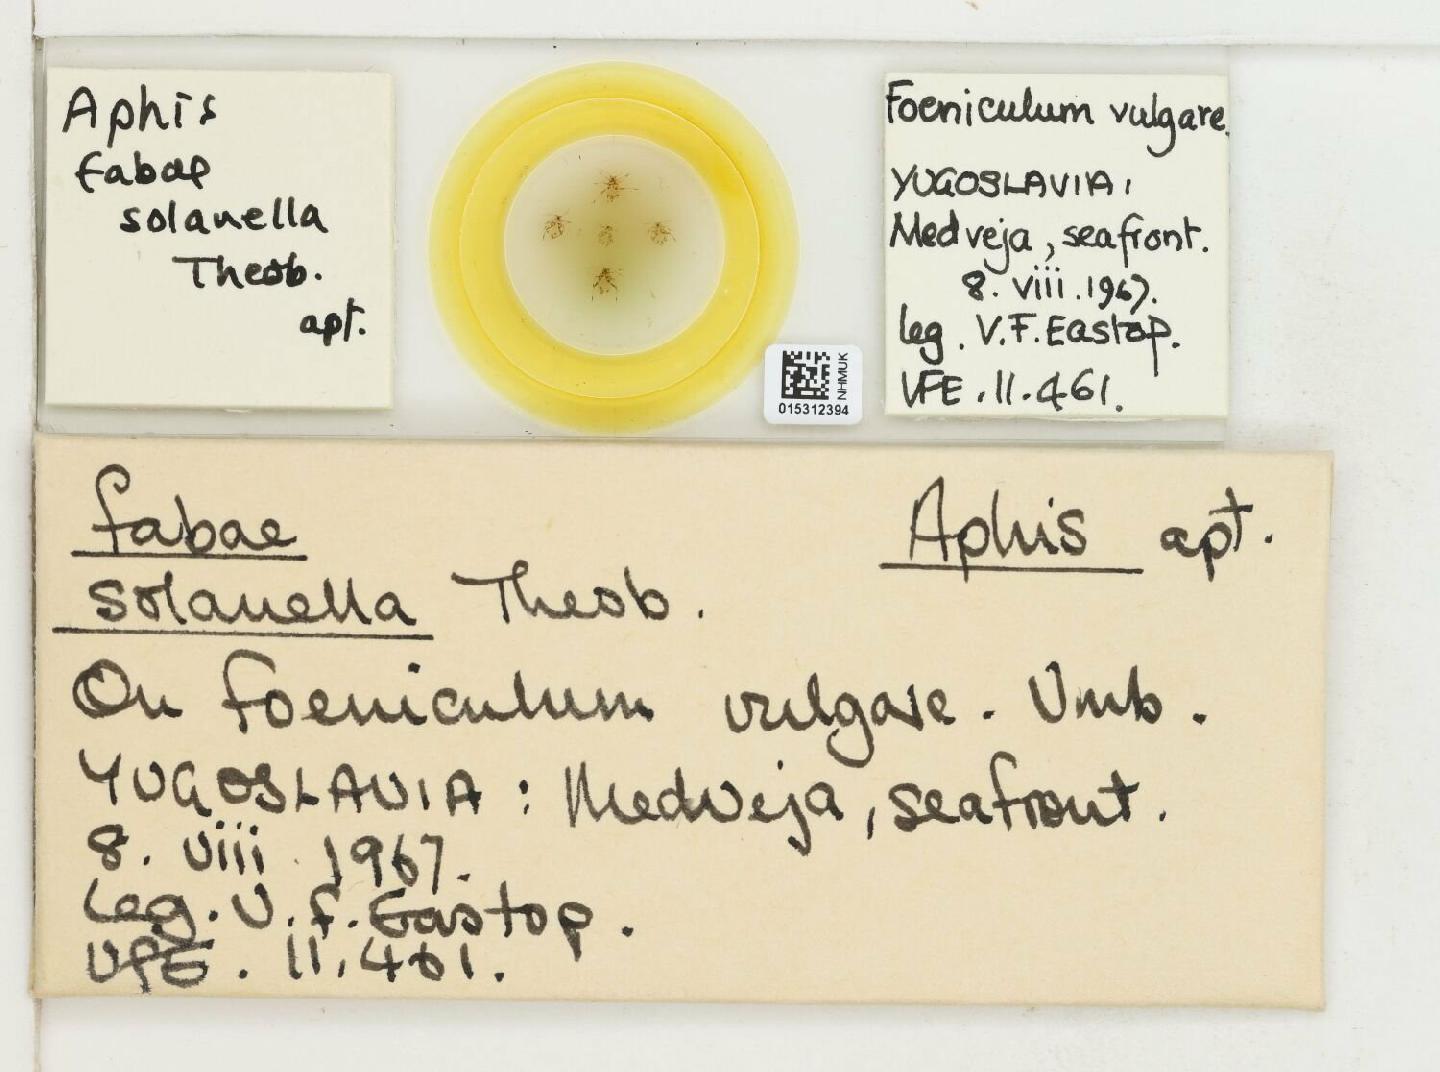 Aphis
fabae
solanella
Theob.
apt.
NHMUK
015312394
Foeniculum vulgare.
YUGOSLAVIA:
Medveja, seafront.
8. viii. 1967.
leg. V.F. Eastop.
VFE. 11.461.
fabae Aphis apt.
solanella Theob.
On Foeniculum vulgare. Umb.
YUGOSLAVIA: Medveja, seafront.
8. viii. 1967.
Leg. V.F. Eastop.
VFE. 11.461.